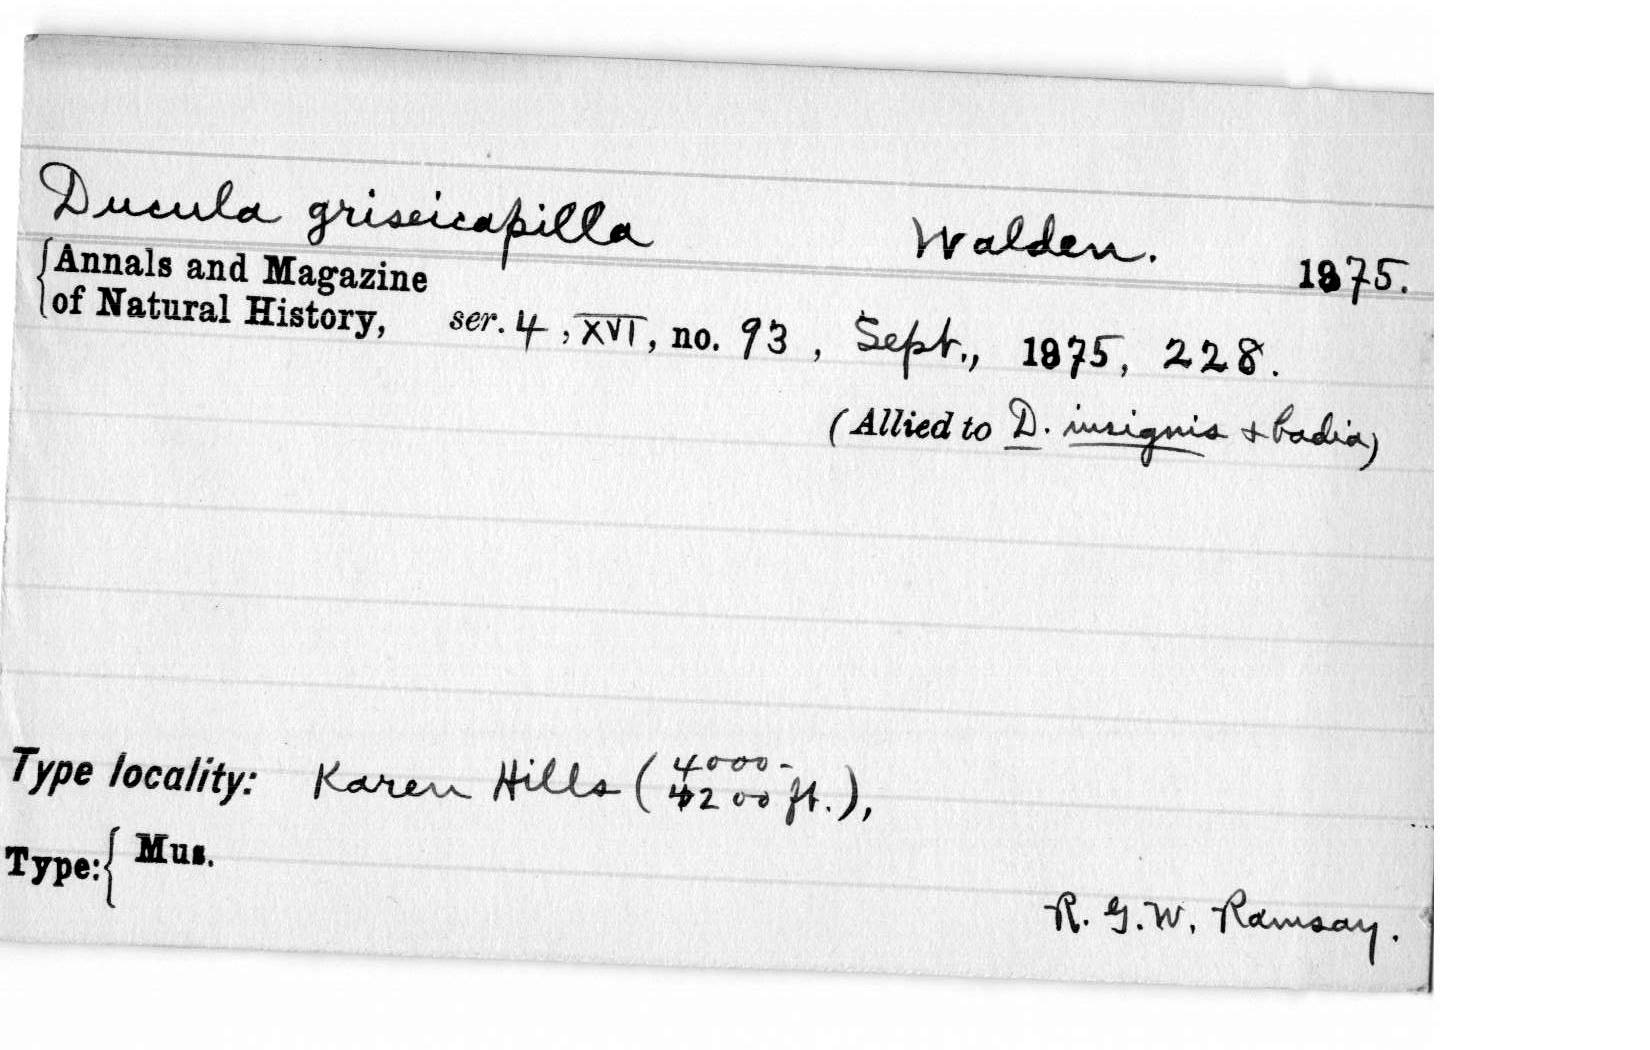 Ducula griseicapilla Walden. 1875.
Annals and Magazine
of Natural History, ser. 4, XVI, no. 93, Sept., 1875, 228.
(Allied to D. insignis + badia)
Type locality: Karen Hills (4000-
4200 ft.),
Type: Mus.
R. G. W. Ramsay.